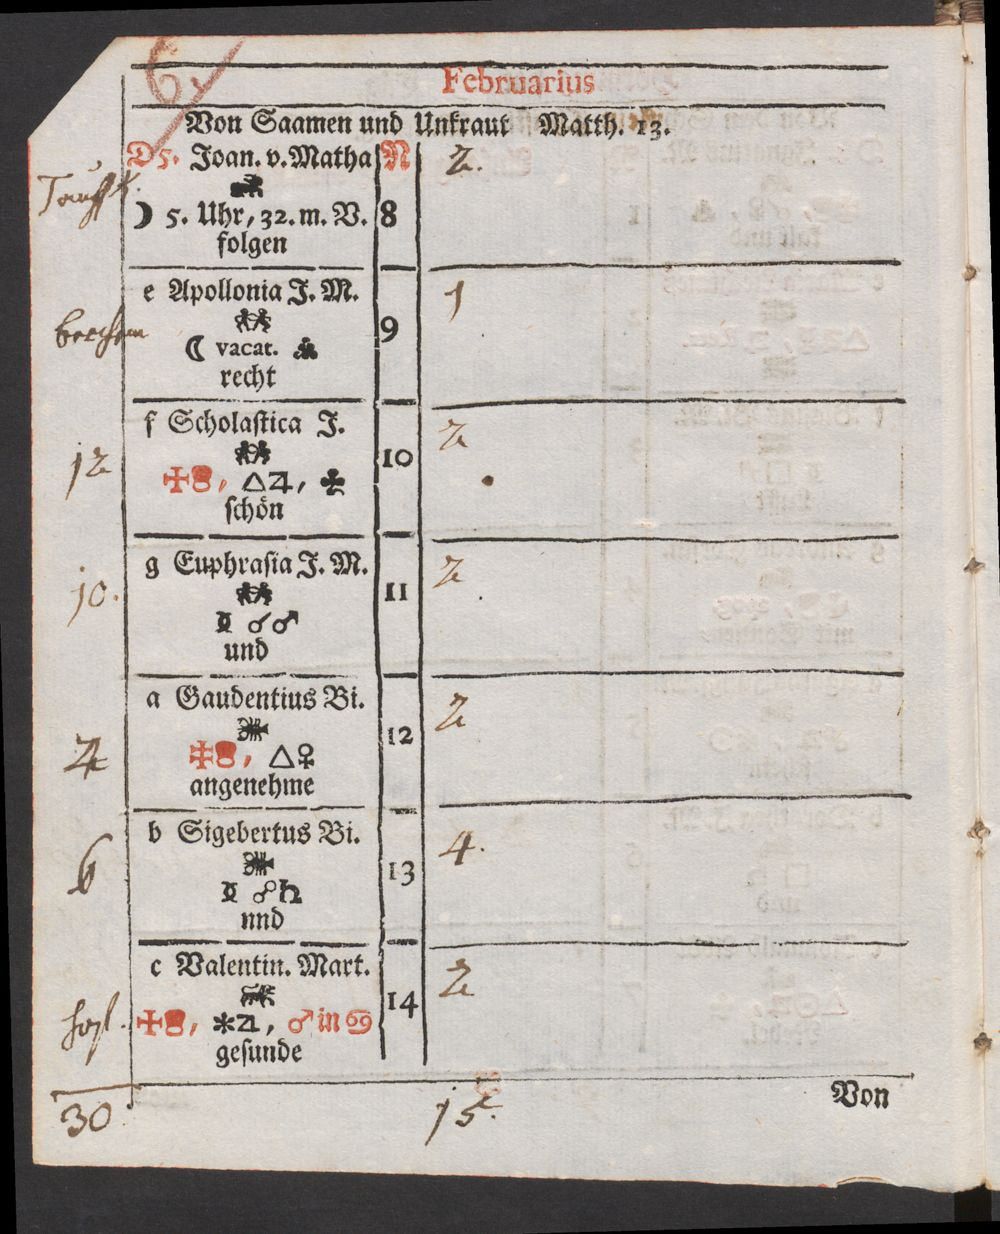 6
Februarius
Von Saamen und Unkraut Matth. 13.
D5. Joan. v. Matha N 2.
☽ 5. Uhr, 32. m. V. 8
folgen
e Apollonia J. M. 1
9
☾ vacat.
recht
f Scholastica J. 2
12 10
△♃, ♣
schön
g Euphrasia J. M. 2
10. 11
☌♂
und
a Gaudentius Bi. 2
12
△♀
angenehme
b Sigebertus Bi. 4.
6 13
☍♄
nnd
c Valentin. Mart. 2
14
⚹♃, ♂ in ♋
gesunde
Von
30 15